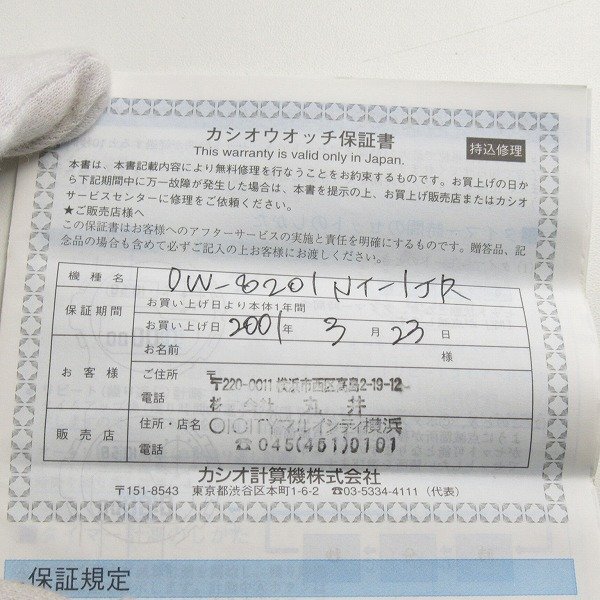 カシオウオッチ保証書
This warranty is valid only in Japan.
持込修理
本書は、本書記載内容により無料修理を行なうことをお約束するものです。お買上げの日か
ら下記期間中に万一故障が発生した場合は、本書を提示の上、お買上げ販売店またはカシオ
サービスセンターに修理をご依頼ください。
★ご販売店様へ
この保証書はお客様へのアフターサービスの実施と責任を明確にするものです。贈答品、記
念品の場合も含めて必ずご記入の上お客様にお渡しください。
機種名 DW-8201NT-1JR
保証期間 お買い上げ日より本体1年間
お買い上げ日 2001年 3月 23日
お客様 お名前 様
ご住所 〒
〒220-0011 横浜市西区高島2-19-12
電話 株式会社 丸井
販売店 住所・店名 OIOICITYマルイシティ横浜
電話 ☎045(451)0101
カシオ計算機株式会社
〒151-8543 東京都渋谷区本町1-6-2 ☎03-5334-4111（代表）
保証規定